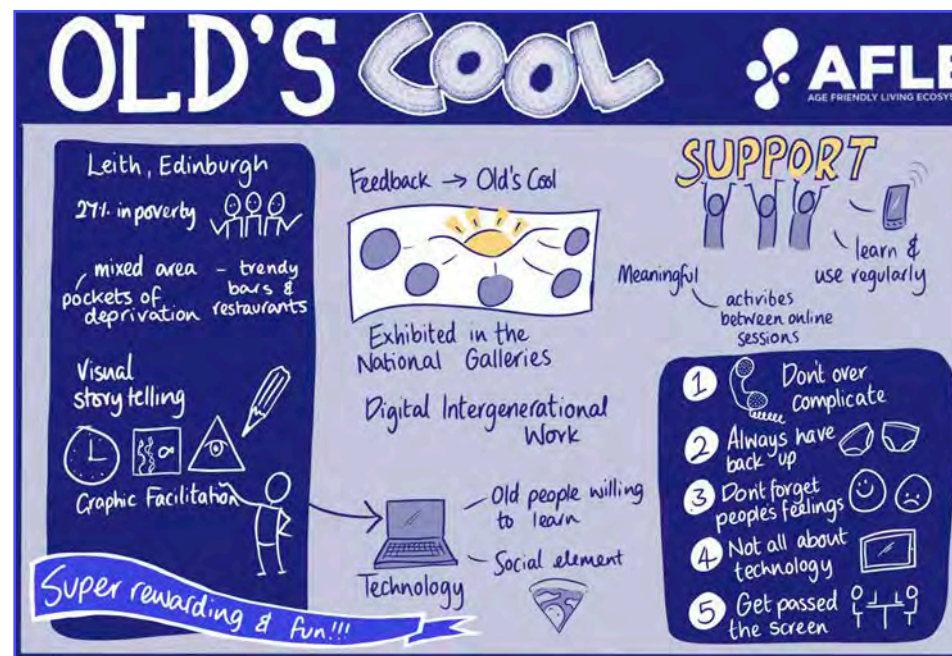 OLD'S COOL
AFLE
AGE FRIENDLY LIVING ECOSYS
Leith, Edinburgh
27% in poverty
mixed area – trendy
bars &
restaurants
pockets of
deprivation
Visual
story telling
Graphic Facilitation
Super rewarding & fun!!!
Feedback → Old's Cool
Exhibited in the
National Galleries
Digital Intergenerational
Work
Technology
Old people willing
to learn
Social element
SUPPORT
learn &
use regularly
Meaningful
activities
between online
sessions
1 Don't over
complicate
2 Always have
back up
3 Don't forget
peoples feelings
4 Not all about
technology
5 Get passed
the screen